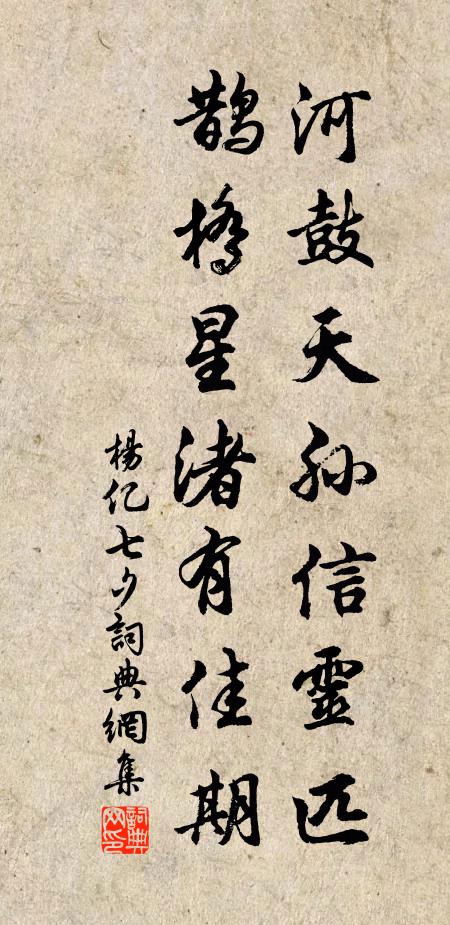 河鼓天孙信靈匹
鵲橋星渚有佳期
楊億七夕詞典網集
詞典網印